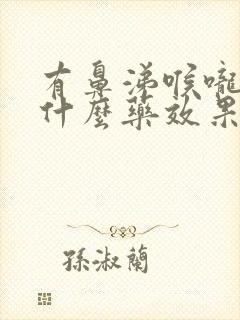 有鼻涕喉嚨
什麼藥效果
孫淑蘭